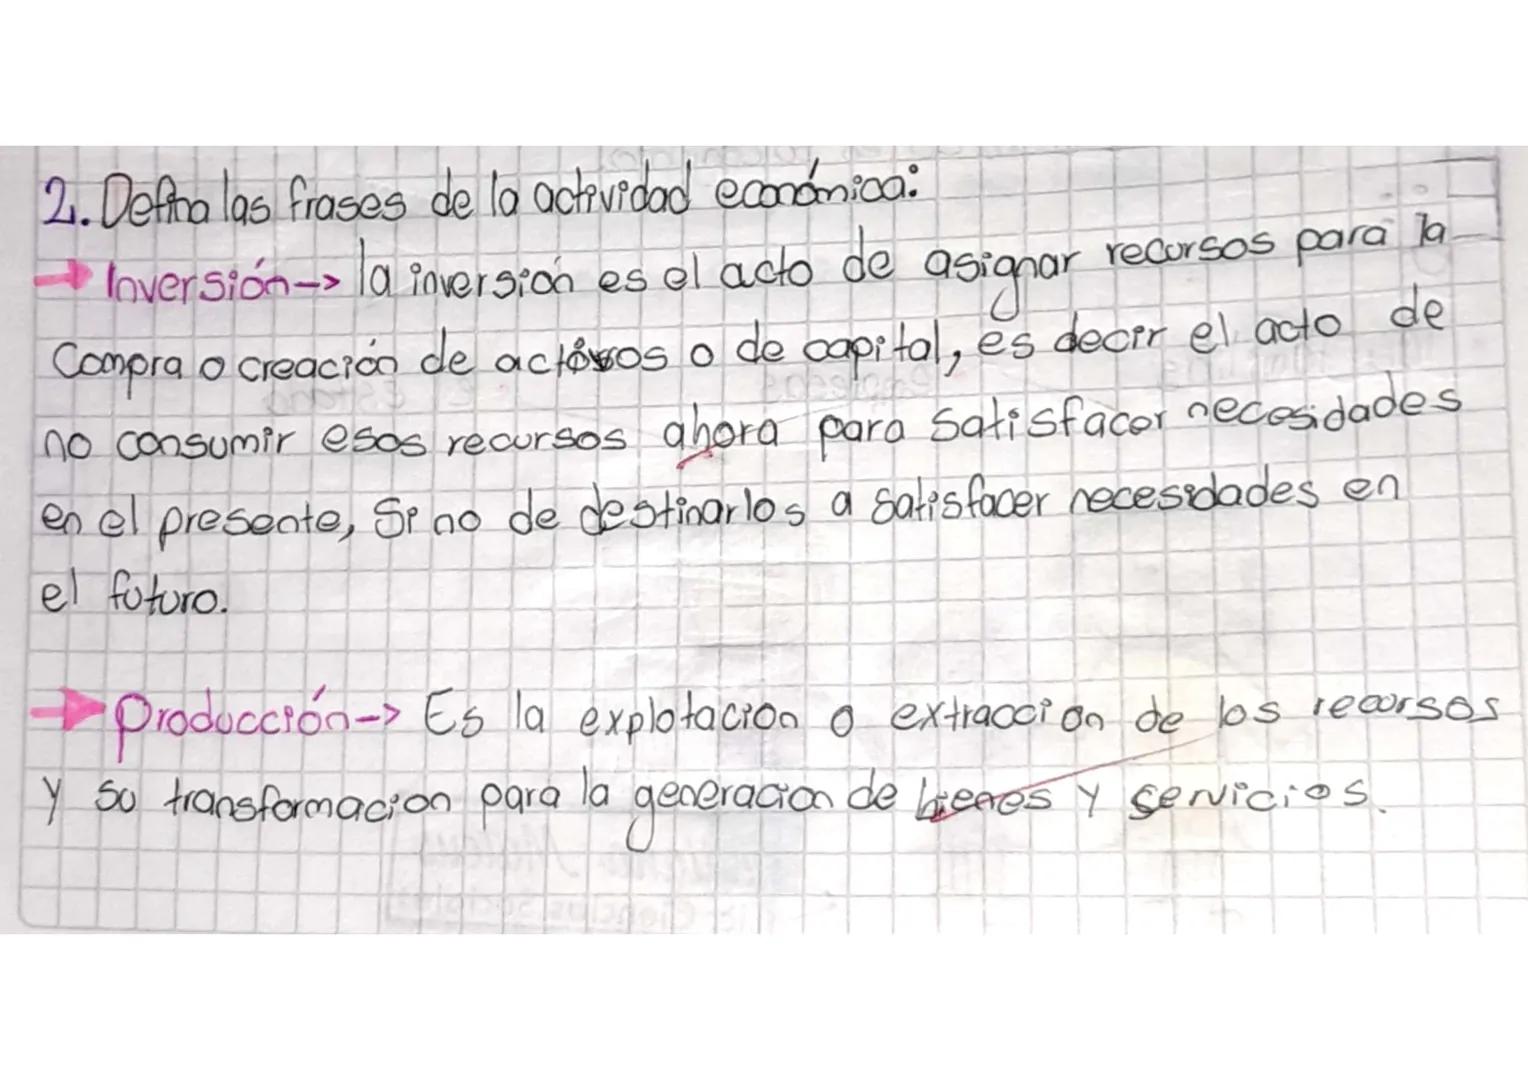 2. Defina las frases de la actividad económica:
→ Inversión--> la inversión es el acto de asignar recursos para la
Compra o creación de activos o de capital, es decir el acto de
no consumir esos recursos ahora para satisfacer necesidades
en el presente, Si no de destinarlos a satisfacer necesidades en
el futuro.
→ Producción--> Es la explotacion o extraccion de los recursos
y su transformacion para la generacion de bienes y servicios.